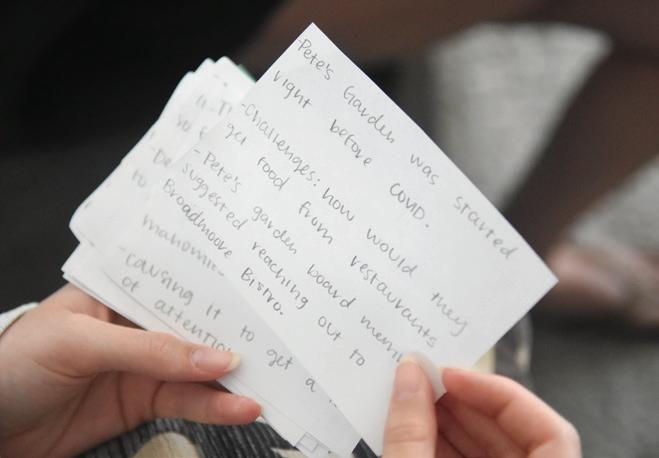 -Pete's Garden was started
right before COVID.
-Challenges: how would they
get food from restaurants
- Pete's garden board mem
suggested reaching out to
Broadmoore Bistro.
so
to
-causing it to get a
of attention